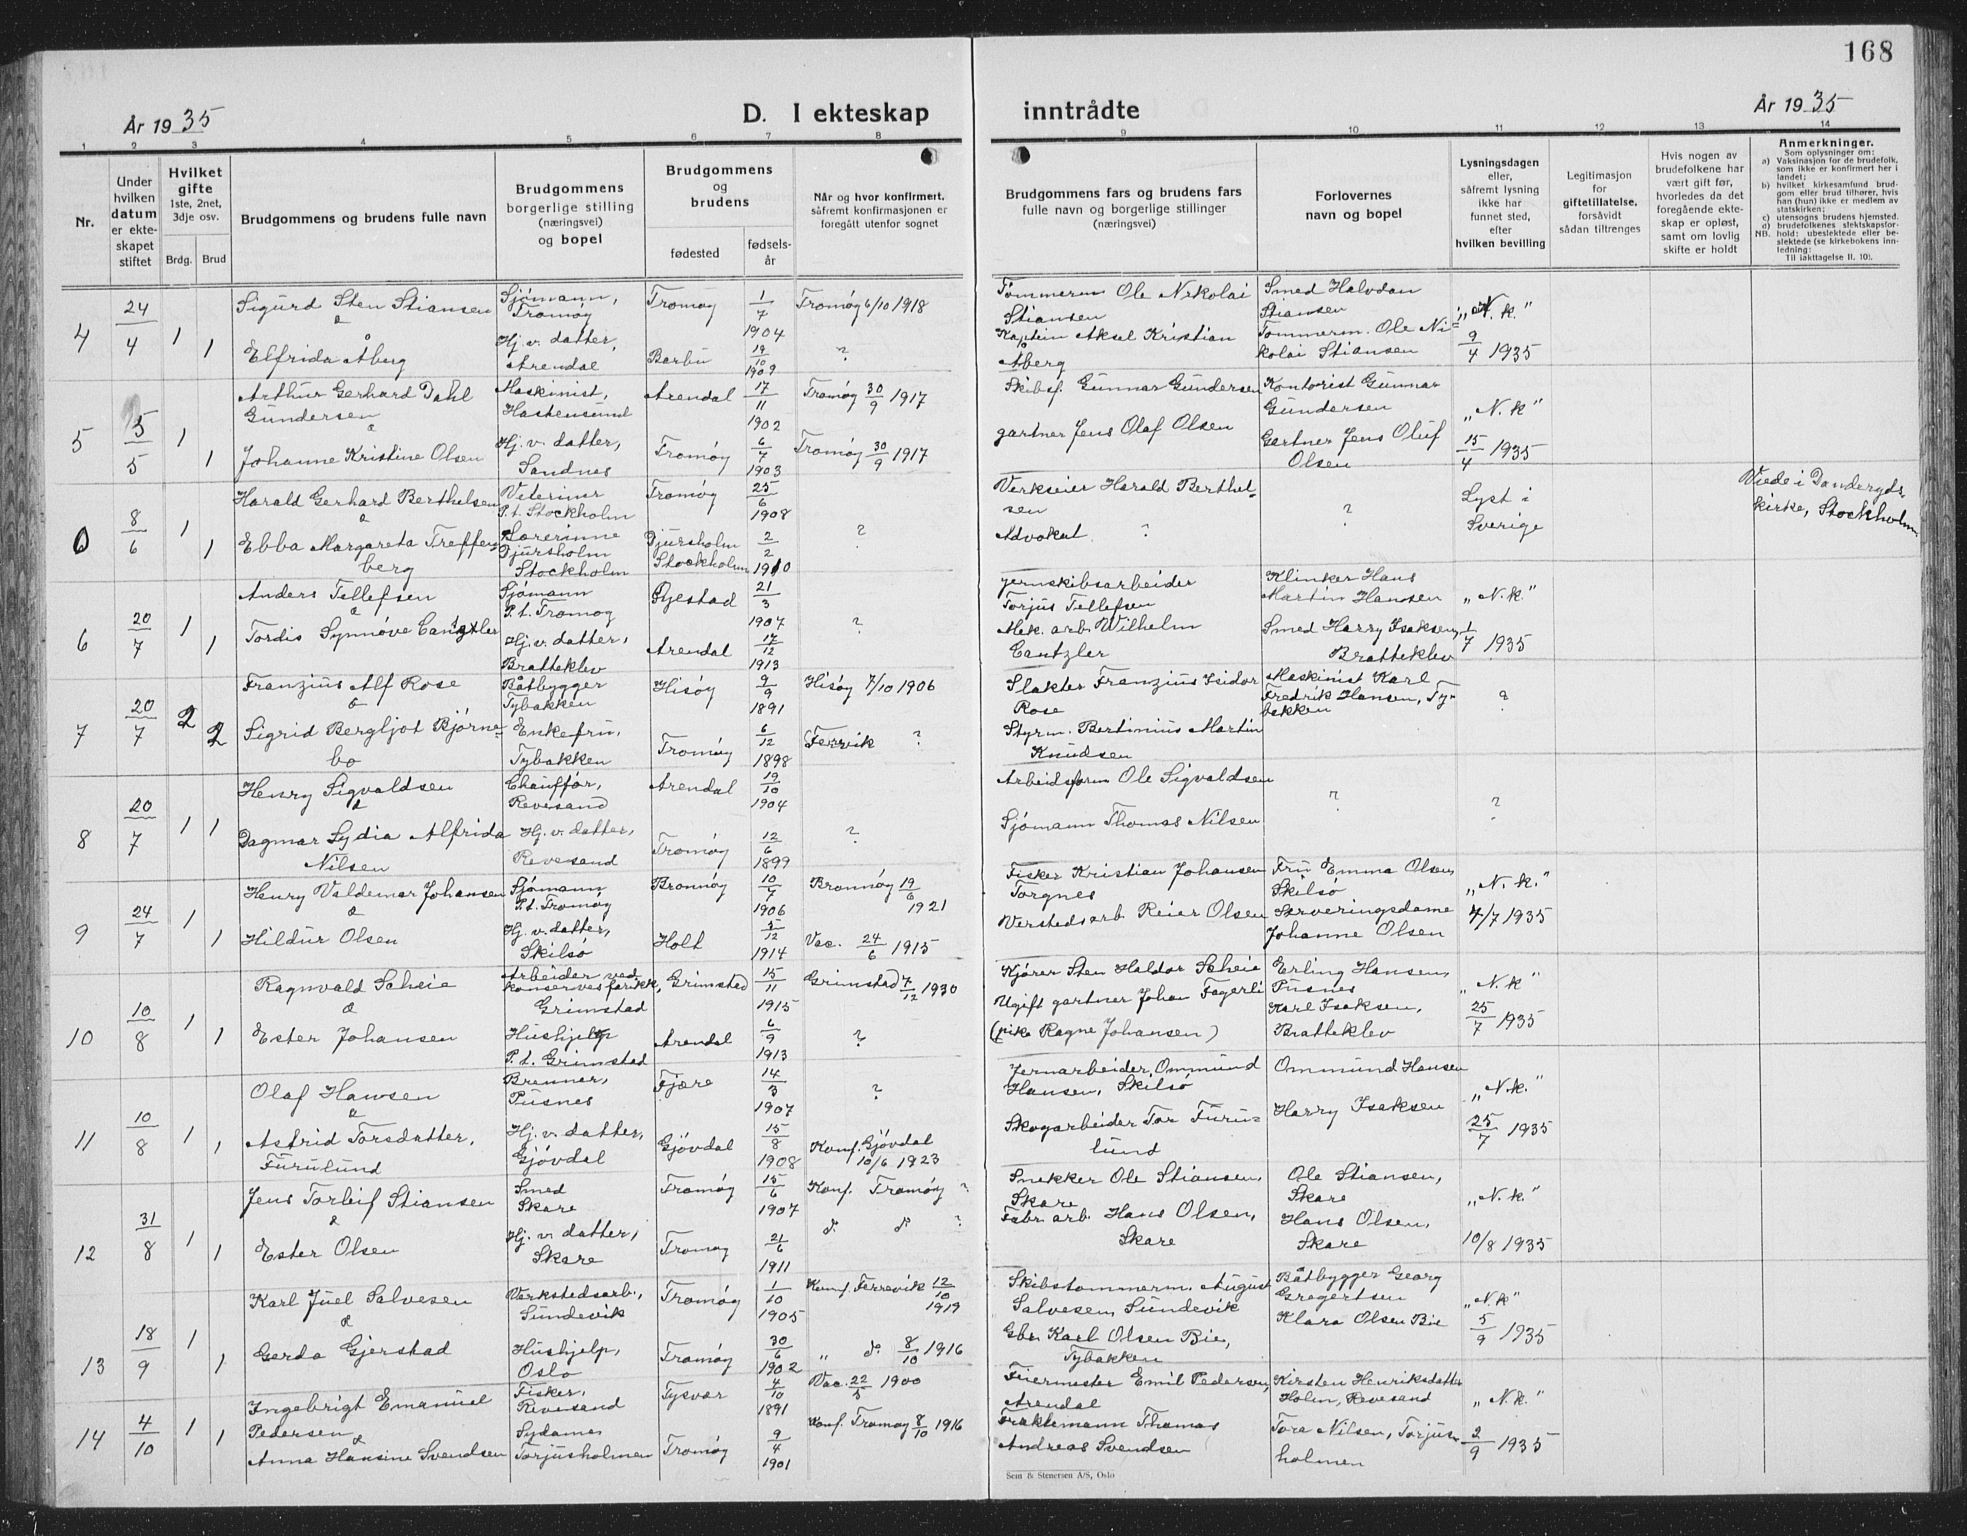 168
År 1935
D. I ekteskap inntrådte
År 1935
1 2 3 4 5 6 7 8 9 10 11 12 13 14
Nr.
Under hvilken datum er ekteskapet stiftet
Hvilket gifte 1ste, 2net, 3dje osv.
Brdg. Brud
Brudgommens og brudens fulle navn
Brudgommens borgerlige stilling (næringsvei) og bopel
Brudgommens og brudens
fødested
fødselsår
Når og hvor konfirmert, såfremt konfirmasjonen er foregått utenfor sognet
Brudgommens fars og brudens fars fulle navn og borgerlige stillinger (næringsvei)
Forlovernes navn og bopel
Lysningsdagen eller, såfremt lysning ikke har funnet sted, efter hvilken bevilling
Legitimasjon for giftetillatelse, forsåvidt sådan tiltrenges
Hvis nogen av brudefolkene har vært gift før, hvorledes da det foregående ekteskap er opløst, samt om lovlig skifte er holdt
Anmerkninger.
Som oplysninger om:
a) Vaksinasjon for de brudefolk, som ikke er konfirmert her i landet;
b) hvilket kirkesamfund brudgom eller brud tilhører, hvis han (hun) ikke er medlem av statskirken;
c) utensogns brudens hjemsted.
d) brudefolkenes slektskapsforhold: ubeslektede eller beslektede (se kirkebokens innledning:
NB.
Til iakttagelse II. 10).
4 24/4 1 Sigurd Sten Stiansen Sjømann, Tromøy Tromøy 1/7 1904 Tromøy 6/10 1918 Tømmerm. Ole Nikolai Stiansen Smed Halvdan Stiansen "N.k."
&
1 Elfrida Åberg Hj. v. datter, Arendal Barbu 19/10 1909 ? Kaptein Aksel Kristian Åberg Tømmerm. Ole Nikolai Stiansen 9/4 1935
5 5/5 1 Arthur Gerhard Dahl Gundersen Maskinist, Hastensund Arendal 17/11 1902 Tromøy 30/9 1917 Skibsf. Gunnar Gundersen Kontorist Gunnar Gundersen "N.k"
&
1 Johanne Kristine Olsen Hj. v. datter, Sandnes Tromøy 6/7 1903 Tromøy 30/9 1917 gartner Jens Olaf Olsen Gartner Jens Oluf Olsen 15/4 1935
0 8/6 1 Harald Gerhard Berthelsen Veterinær P.t. Stockholm Tromøy 25/6 1908 Verkseier Harald Berthelsen ? Lyst i Sverige Viede i Danderyds kirke, Stockholm
&
1 Ebba Margareta Treffenberg Lærerinne Djursholm Stockholm Djursholm Stockholm 2/2 1910 ? Advokat ?
6 20/7 1 Anders Tellefsen Sjømann P.t. Tromøy Øyestad 21/3 1907 ? Jernskibsarbeider Torjus Tellefsen Klinker Hans Martin Hansen "N.k."
&
1 Tordis Synnøve Cantzler Hj. v. datter, Bratteklev Arendal 17/12 1913 Mek. arb. Wilhelm Cantzler Smed Harry Isaksen, Bratteklev 1/7 1935
7 20/7 2 Franzius Alf Rose Båtbygger Tybakken Hisøy 9/9 1891 Hisøy 7/10 1906 Slakter Franzius Isidor Rose Maskinist Karl Fredrik Hansen, Tybakken ?
&
2 Sigrid Bergljot Bjørnebo Enkefru, Tybakken Tromøy 6/12 1898 Færvik ? Styrm. Bertinius Martin Knudsen
8 20/7 1 Henry Sigvaldsen Chauffør, Revesand Arendal 19/10 1904 Arbeidsform Ole Sigvaldsen ? ?
&
1 Dagmar Lydia Alfrida Nilsen Hj. v. datter, Revesand Tromøy 12/6 1899 ? Sjømann Thomas Nilsen
9 24/7 1 Henry Valdemar Johansen Sjømann P.t. Tromøy Brønnøy 10/7 1906 Brønnøy 19/6 1921 Fisker Kristian Johansen Torgnes Fru Emma Olsen, Skilsø "N.k."
&
1 Hildur Olsen Hj. v. datter, Skilsø Holt 5/12 1914 Vac. 24/6 1915 Verstedsarb. Reier Olsen Serveringsdame Johanne Olsen 4/7 1935
10 10/8 1 Ragnvald Scheie Arbeider ved konservesfabrikk, Grimstad Grimstad 15/11 1915 Grimstad 7/12 1930 Kjører Sten Haldor Scheie Erling Hansen, Pusnes "N.k"
&
1 Ester Johansen Hushjelp P.t. Grimstad Arendal 6/9 1913 ? Ugift gartner Johan Fagerli (pike Ragne Johansen) Karl Isaksen, Bratteklev 25/7 1935
11 10/8 1 Olaf Hansen Brenner, Pusnes Fjære 14/3 1907 ? Jernarbeider, Ommund Hansen, Skilsø Ommund Hansen "N.k."
&
1 Astrid Torsdatter, Furulund Hj. v. datter, Gjøvdal Gjøvdal 15/8 1908 Konf. Gjøvdal 10/6 1923 Skogarbeider Tor Furulund Harry Isaksen 25/7 1935
12 31/8 1 Jens Torleif Stiansen Smed Skare Tromøy 15/6 1907 Konf. Tromøy ? Snekker Ole Stiansen, Skare Ole Stiansen, Skare "N.k."
&
1 Ester Olsen Hj. v. datter, Skare Tromøy 21/6 1911 d. d° ? Fabr. arb. Hans Olsen, Skare Hans Olsen, Skare 10/8 1935
13 18/9 1 Karl Juel Salvesen Verkstedsarb., Sundevik Tromøy 1/10 1905 Konf. Færrevik 12/10 1919 Skibstømmerm. August Salvesen, Sundevik Båtbygger Georg Gregertsen "N.k"
&
1 Gerda Gjerstad Hushjelp, Oslo Tromøy 30/6 1902 " d° 8/10 1916 Gbr. Karl Olsen Bie, Tybakken Klara Olsen Bie 5/9 1935
14 4/10 1 Ingebrigt Emanuel Pedersen Fisker, Revesand Tysvær 4/10 1891 Vac. 22/5 1900 Fyermester Emil Pedersen, Arendal Kirsten Henriksdatter Holm, Revesand "N.k."
&
1 Anna Hansine Svendsen Sydame Torjusholmen Tromøy 9/4 1901 Konf. Tromøy 8/10 1916 Fraktemann Thomas Andreas Svendsen Tore Nilsen, Torjusholmen 2/9 1935
Sem & Stenersen A/S, Oslo